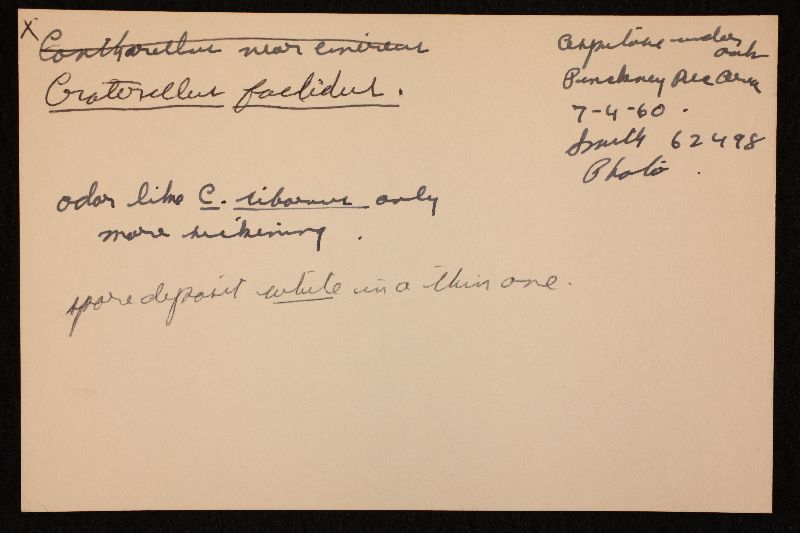 X
Cantharellus near cinereus
Craterellus foetidus.
Cespitose under
oak
Pinckney Rec Area
7-4-60.
Smith 62498
Photo.
odor like C. cibarius only
more sickening.
spore deposit white in a thin one.